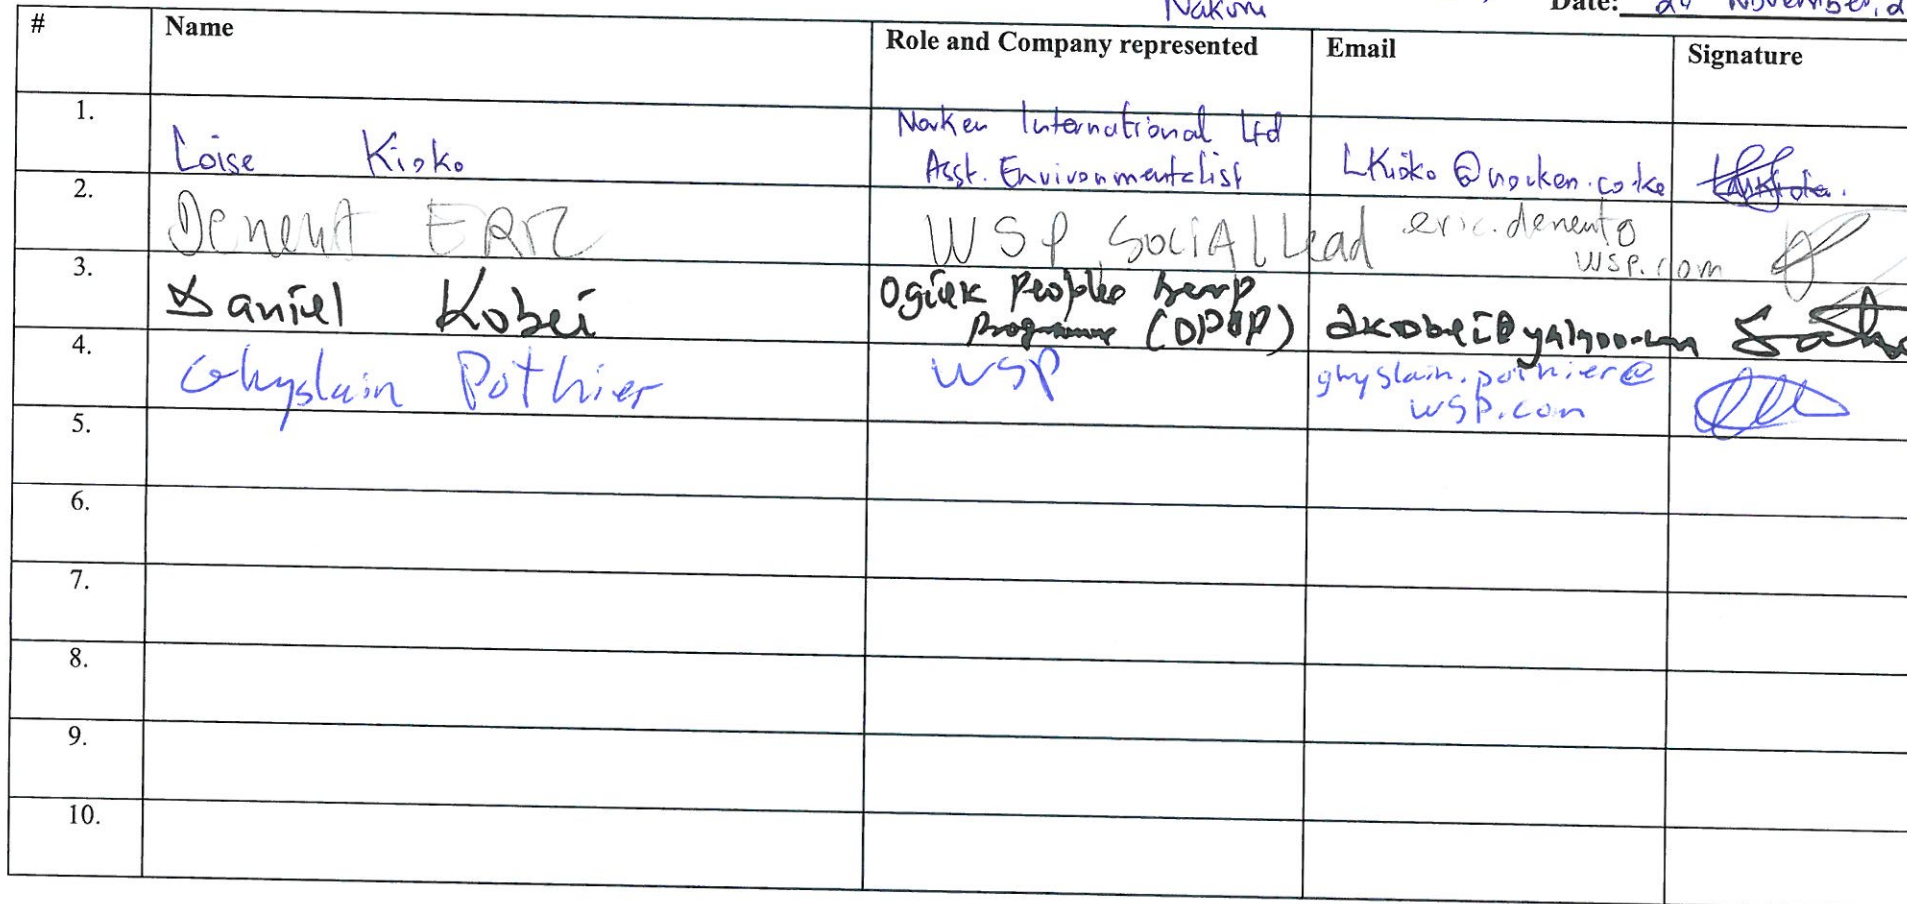 Nakuru Date: 24 November, 2
# Name Role and Company represented Email Signature
1. Loise Kioko Norken International Ltd
Asst. Environmentalist LKioko@norken.co.ke
2. Denent ERIC WSP Social Lead eric.denent@
wsp.com
3. Daniel Kobei Ogiek Peoples
Programme (OPDP) dkobei@yahoo.com
4. Ghyslain Pothier WSP ghyslain.pothier@
wsp.com
5.
6.
7.
8.
9.
10.